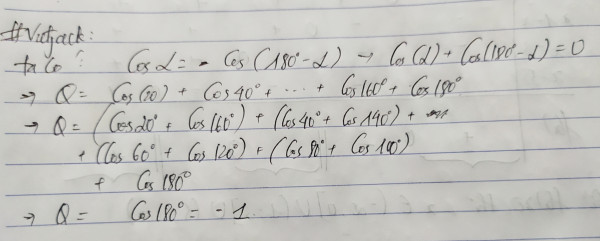 #Vietjack:
ta có: Cos α = - Cos (180° - α) → Cos (α) + Cos(180° - α) = 0
→ Q = Cos(20) + Cos 40° + ... + Cos 160° + Cos 180°
→ Q = (Cos 20° + Cos 160°) + (Cos 40° + Cos 140°) +
+ (Cos 60° + Cos 120°) + (Cos 80° + Cos 100°)
+ Cos 180°
→ Q = Cos 180° = - 1